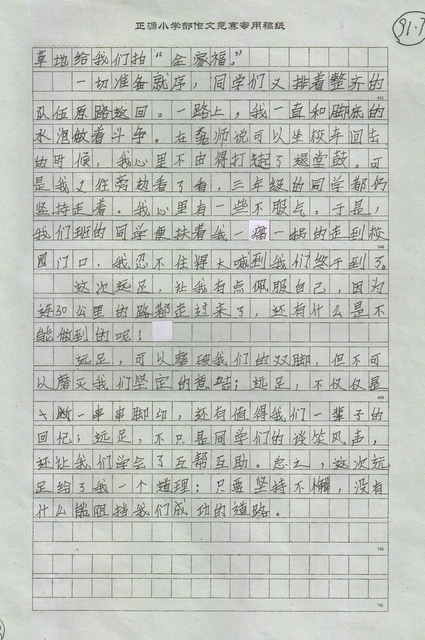 正源小学部作文竞赛专用稿纸
91.7
草地给我们拍“全家福。”
一切准备就序,同学们又排着整齐的
队伍原路返回。一路上,我一直和脚底的
水泡做着斗争。在老师说可以坐校车回去
的时候,我心里不由得打起了退堂鼓。可
是我又往旁边看了看,三年级的同学都仍
坚持走着。我心里有一些不服气。于是,
我们班的同学便扶着我一瘸一拐的走到校
园门口,我忍不住得大喊到我们终于到了。
这次远足,让我有点佩服自己,因为
连30公里的路都走过来了,还有什么是不
能做到的呢!
远足,可以磨破我们的双脚,但不可
以磨灭我们坚定的意志;远足,不仅仅是
一串串脚印,还有值得我们一辈子的
回忆;远足,不只是同学们的谈笑风声,
还让我们学会了互帮互助。总之,这次远
足给了我一个道理:只要坚持不懈,没有
什么能阻挡我们成功的道路。